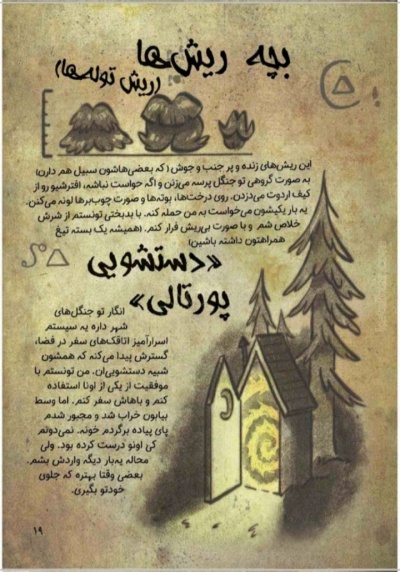 بچه ریش‌ها
(ریش توله‌ها)
این ریش‌های زنده و پر جنب و جوش (که بعضی‌هاشون سبیل هم دارن)
به صورت گروهی تو جنگل پرسه می‌زنن و اگه حواست نباشه، افترشیو رو از
کیف اردوت می‌دزدن. روی درخت‌ها، بوته‌ها و صورت چوب‌برها لونه می‌کنن.
یه بار یکیشون می‌خواست به من حمله کنه. با بدبختی تونستم از شرش
خلاص شم و با صورت بی‌ریش فرار کنم. (همیشه یک بسته تیغ
همراهتون داشته باشین)
«دستشویی
پورتالی»
انگار تو جنگل‌های
شهر داره یه سیستم
اسرارآمیز اتاقک‌های سفر در فضا،
گسترش پیدا می‌کنه که همشون
شبیه دستشویی‌ان. من تونستم با
موفقیت از یکی از اونا استفاده
کنم و باهاش سفر کنم. اما وسط
بیابون خراب شد و مجبور شدم
پای پیاده برگردم خونه. نمی‌دونم
کی اونو درست کرده بود. ولی
محاله یه‌بار دیگه واردش بشم.
بعضی وقتا بهتره که جلوی
خودتو بگیری.
۱۹